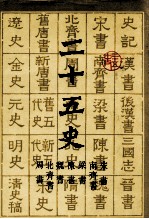 史記 漢書 後漢書 三國志 晉書
宋書 南齊書 梁書 陳書
北齊書
舊唐書 新唐書 舊五代史 新五代史 宋史
遼史 金史 元史 明史 清史稿
二十五史
宋書
南齊書
梁書
陳書
魏書
北齊書
周書